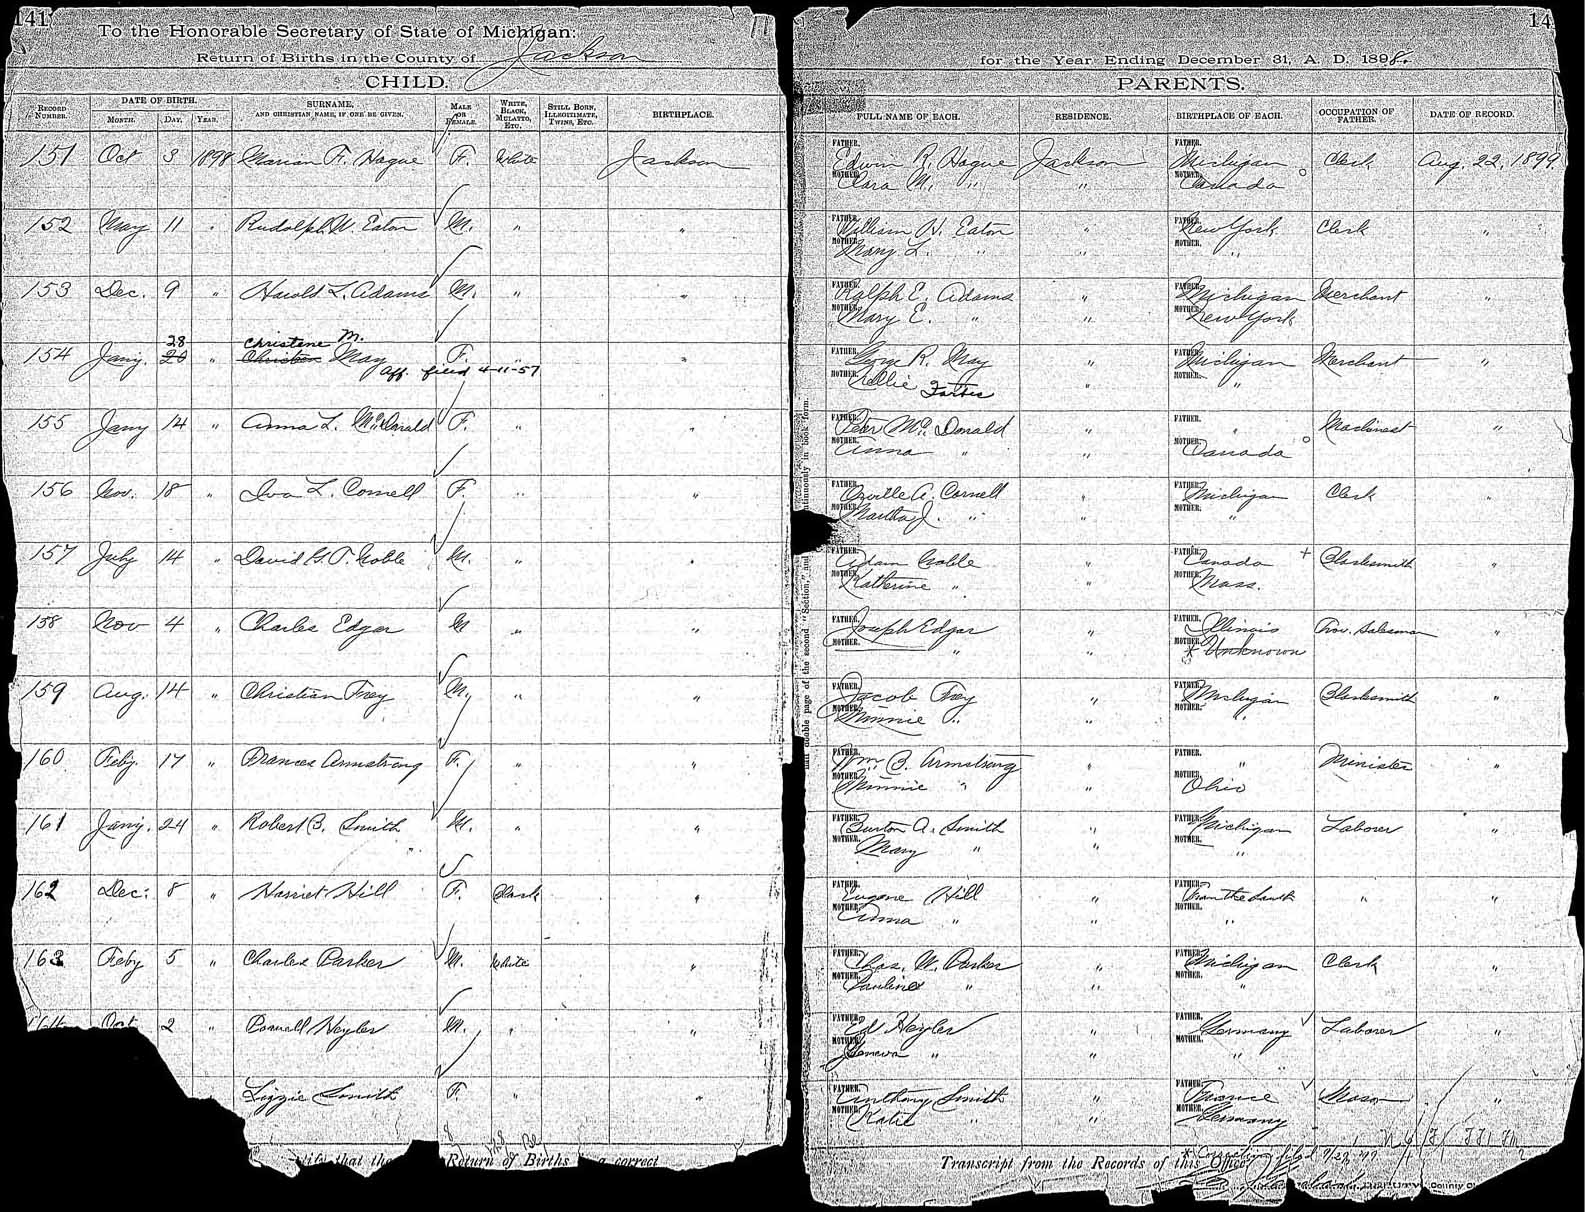 141
To the Honorable Secretary of State of Michigan:
Return of Births in the County of Jackson
CHILD.
RECORD NUMBER. DATE OF BIRTH. MONTH. DAY. YEAR. SURNAME, AND CHRISTIAN NAME, IF ONE BE GIVEN. MALE OR FEMALE. WHITE, BLACK, MULATTO, ETC. STILL BORN, ILLEGITIMATE, TWINS, ETC. BIRTHPLACE.
151 Oct 3 1898 Marian F. Hague F. White Jackson
152 May 11 " Rudolph W. Eaton M. " "
153 Dec. 9 " Harold L. Adams M. " "
28 Christene M.
154 Jany. 20 " May F. " "
aff. filed 4-11-57
155 Jany 14 " Anna L. McDonald F. " "
156 Nov. 18 " Iva L. Cornell F. " "
157 July 14 " David G. T. Noble M. " "
158 Nov 4 " Charles Edgar M " "
159 Aug. 14 " Christian Frey M. " "
160 Feby. 17 " Frances Armstrong F. " "
161 Jany. 24 " Robert B. Smith M. " "
162 Dec. 8 " Harriet Hill F. Black "
163 Feby 5 " Charles Parker M. White "
164 Oct 2 " Heyler M. " "
Lizzie Smith F. " "
that the Return of Births a correct
14
for the Year Ending December 31, A. D. 1898.
PARENTS.
FULL NAME OF EACH. RESIDENCE. BIRTHPLACE OF EACH. OCCUPATION OF FATHER. DATE OF RECORD.
FATHER. Edwin R. Hague Jackson FATHER. Michigan Clerk Aug. 22, 1899
MOTHER. Clara M. " " MOTHER. Canada
FATHER. William H. Eaton " FATHER. New York Clerk "
MOTHER. Mary L. " " MOTHER. "
FATHER. Ralph E. Adams " FATHER. Michigan Merchant "
MOTHER. Mary E. " " MOTHER. New York
FATHER. George R. May " FATHER. Michigan Merchant "
MOTHER. Nellie Forbes " MOTHER. "
FATHER. Peter McDonald " FATHER. " Machinest "
MOTHER. Anna " " MOTHER. Canada
FATHER. Orville A. Cornell " FATHER. Michigan Clerk "
MOTHER. Martha J. " " MOTHER. "
FATHER. Adam Noble " FATHER. Canada + Blacksmith "
MOTHER. Katherine " " MOTHER. Mass.
FATHER. Joseph Edgar " FATHER. Illinois Trav. Salesman "
MOTHER. " " MOTHER. * Unknown
FATHER. Jacob Frey " FATHER. Michigan Blacksmith "
MOTHER. Minnie " " MOTHER. "
FATHER. Wm. B. Armstrong " FATHER. " Minister "
MOTHER. Minnie " " MOTHER. Ohio
FATHER. Burton A. Smith " FATHER. Michigan Laborer "
MOTHER. Mary " " MOTHER. "
FATHER. Eugene Hill " FATHER. From the South " "
MOTHER. Anna " " MOTHER. "
FATHER. Chas. W. Parker " FATHER. Michigan Clerk "
MOTHER. Pauline " " MOTHER. "
FATHER. Ed Heyler " FATHER. Germany Laborer "
MOTHER. Geneva " " MOTHER. "
FATHER. Anthony Smith " FATHER. France Mason "
MOTHER. Katie " " MOTHER. Germany
* Correction filed
Transcript from the Records of this Office
County